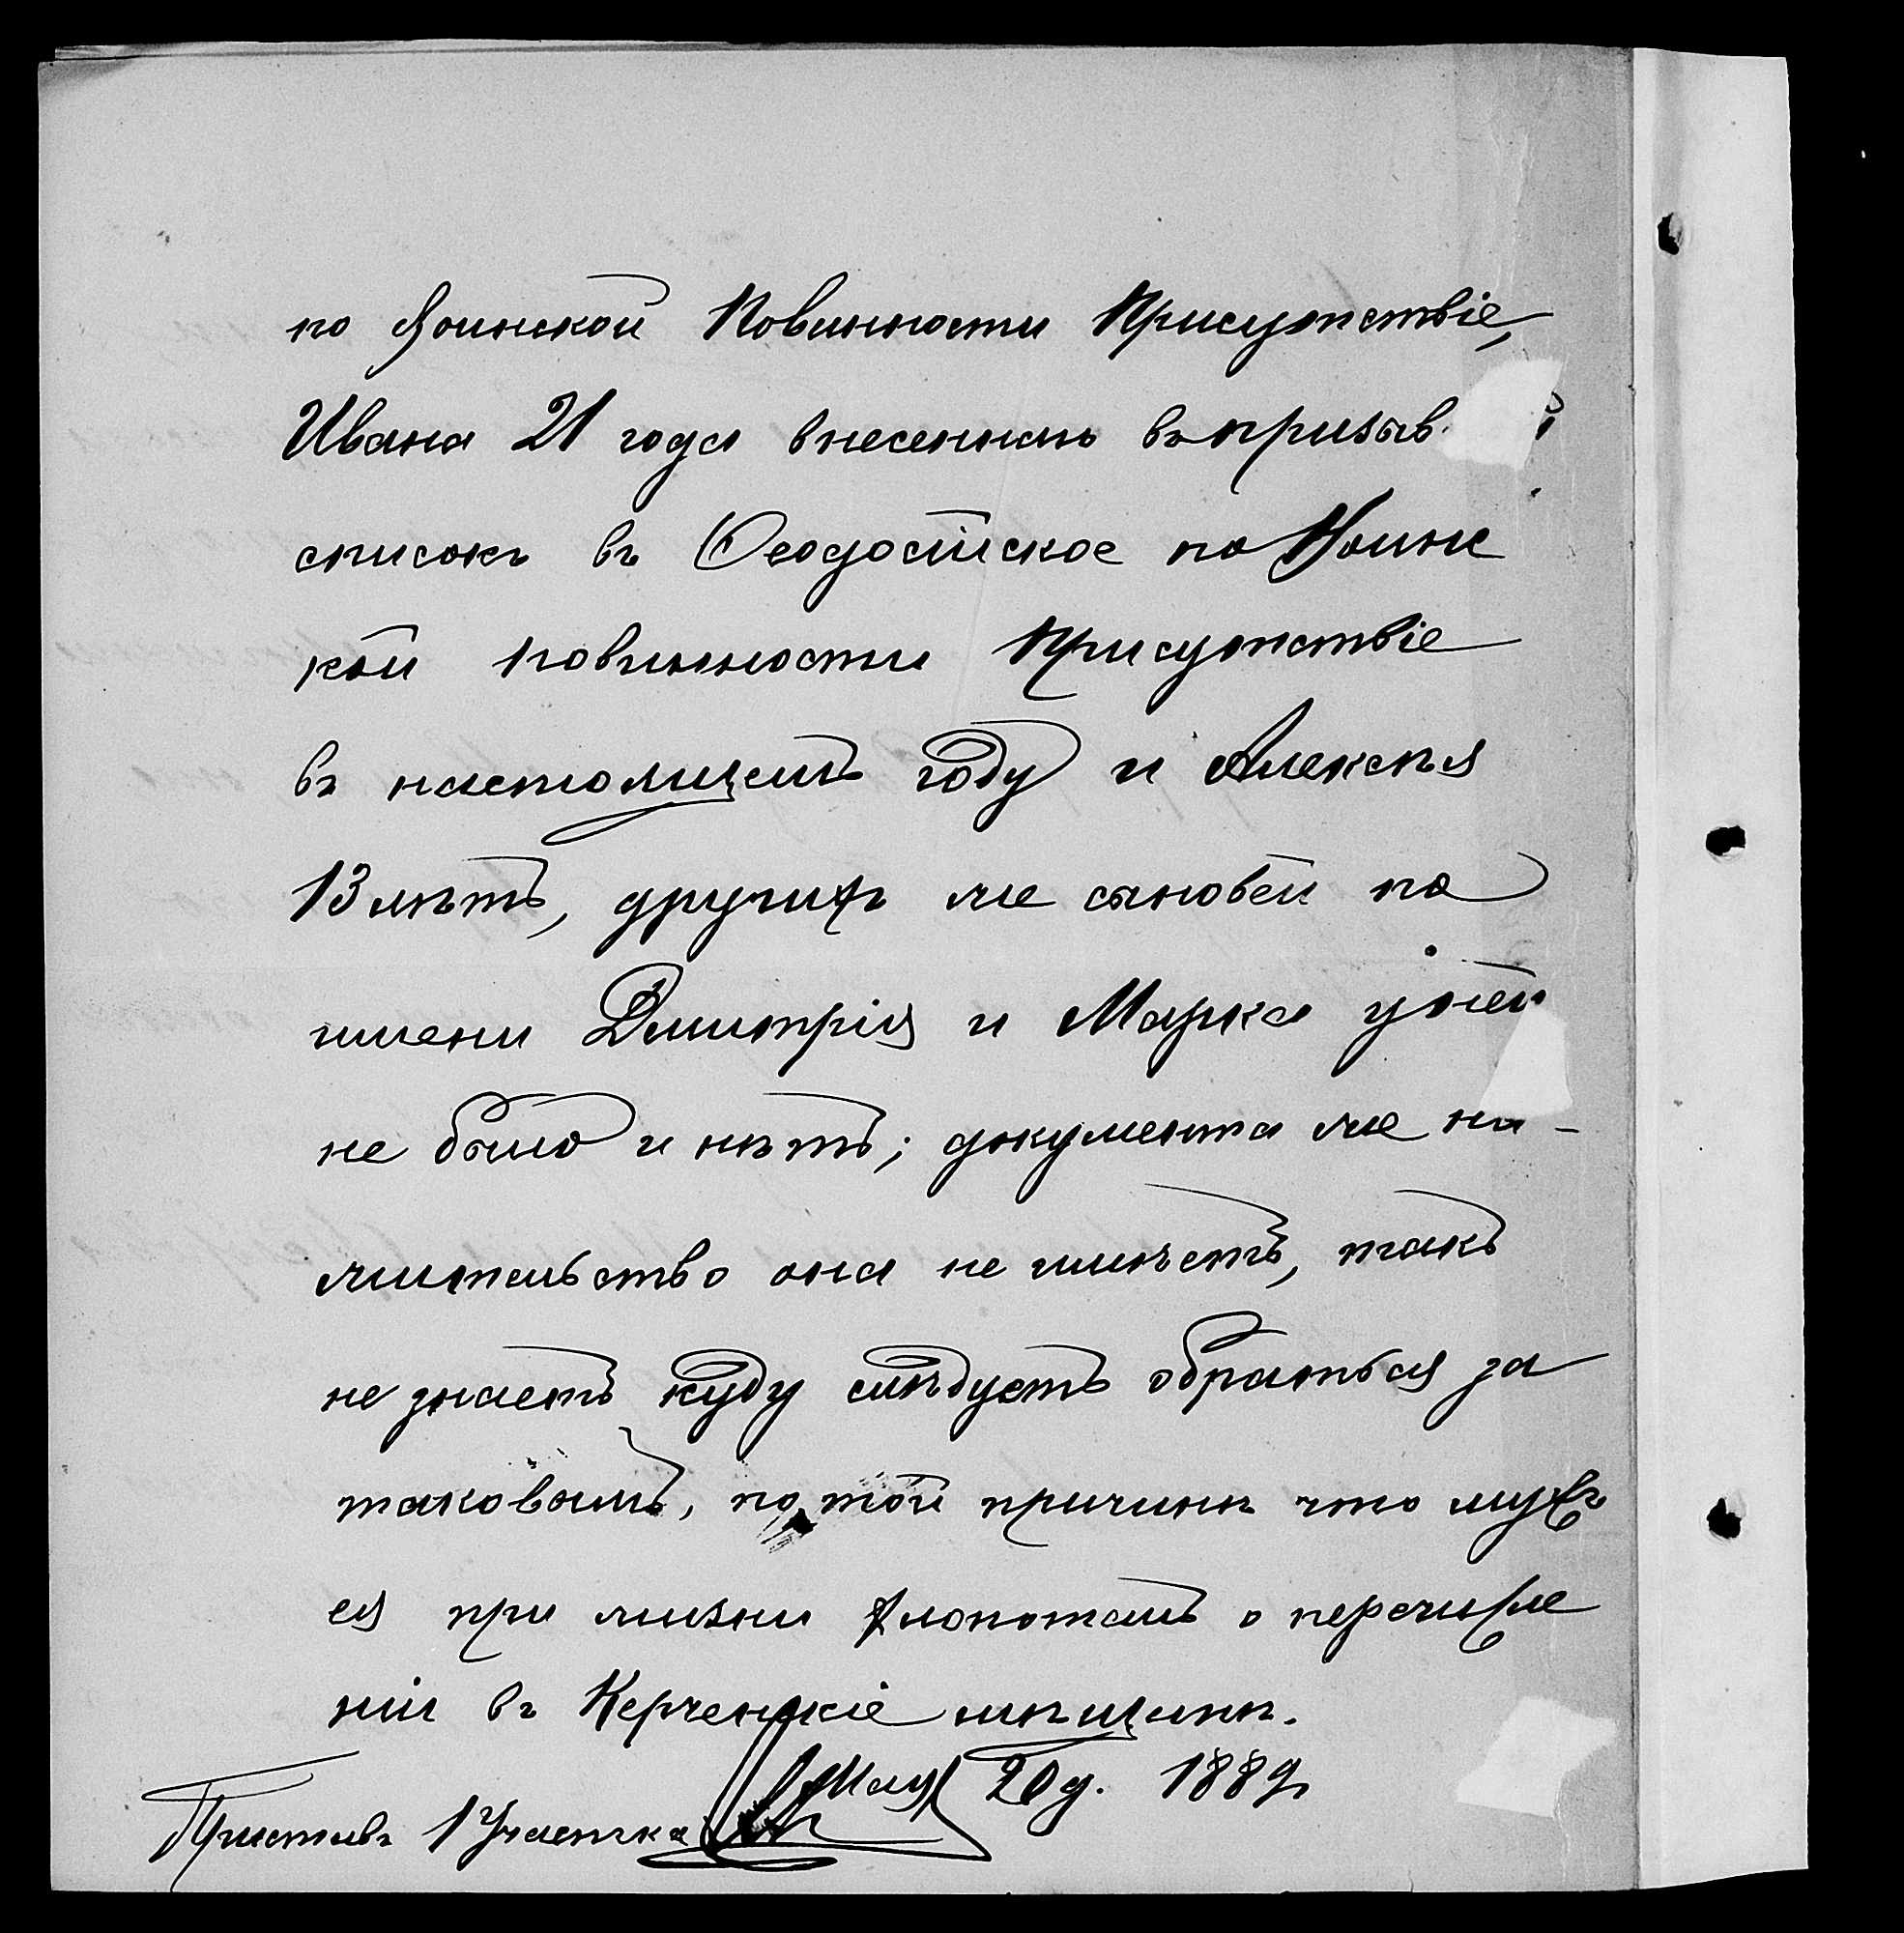 по Воинской Повинности Присутствіе,
Ивана 21 года внесеннаго въ призыв
списокъ въ Ѳеодосійское по Воинс
кой повинности Присутствіе
въ настоящемъ году и Алексѣя
13 лѣтъ, другихъ же сыновей по
имени Дмитрія и Марка у ней
не было и нѣтъ; документа же на-
жительство она не имѣетъ, такъ
не знаетъ куду слѣдуетъ обраться за
таковымъ, по той причинѣ что мужъ
ея при жизни хлопоталъ о перечисле
ніи въ Керченскіе мѣщане.
Мая 20 д. 1889
Приставъ 1 Участка